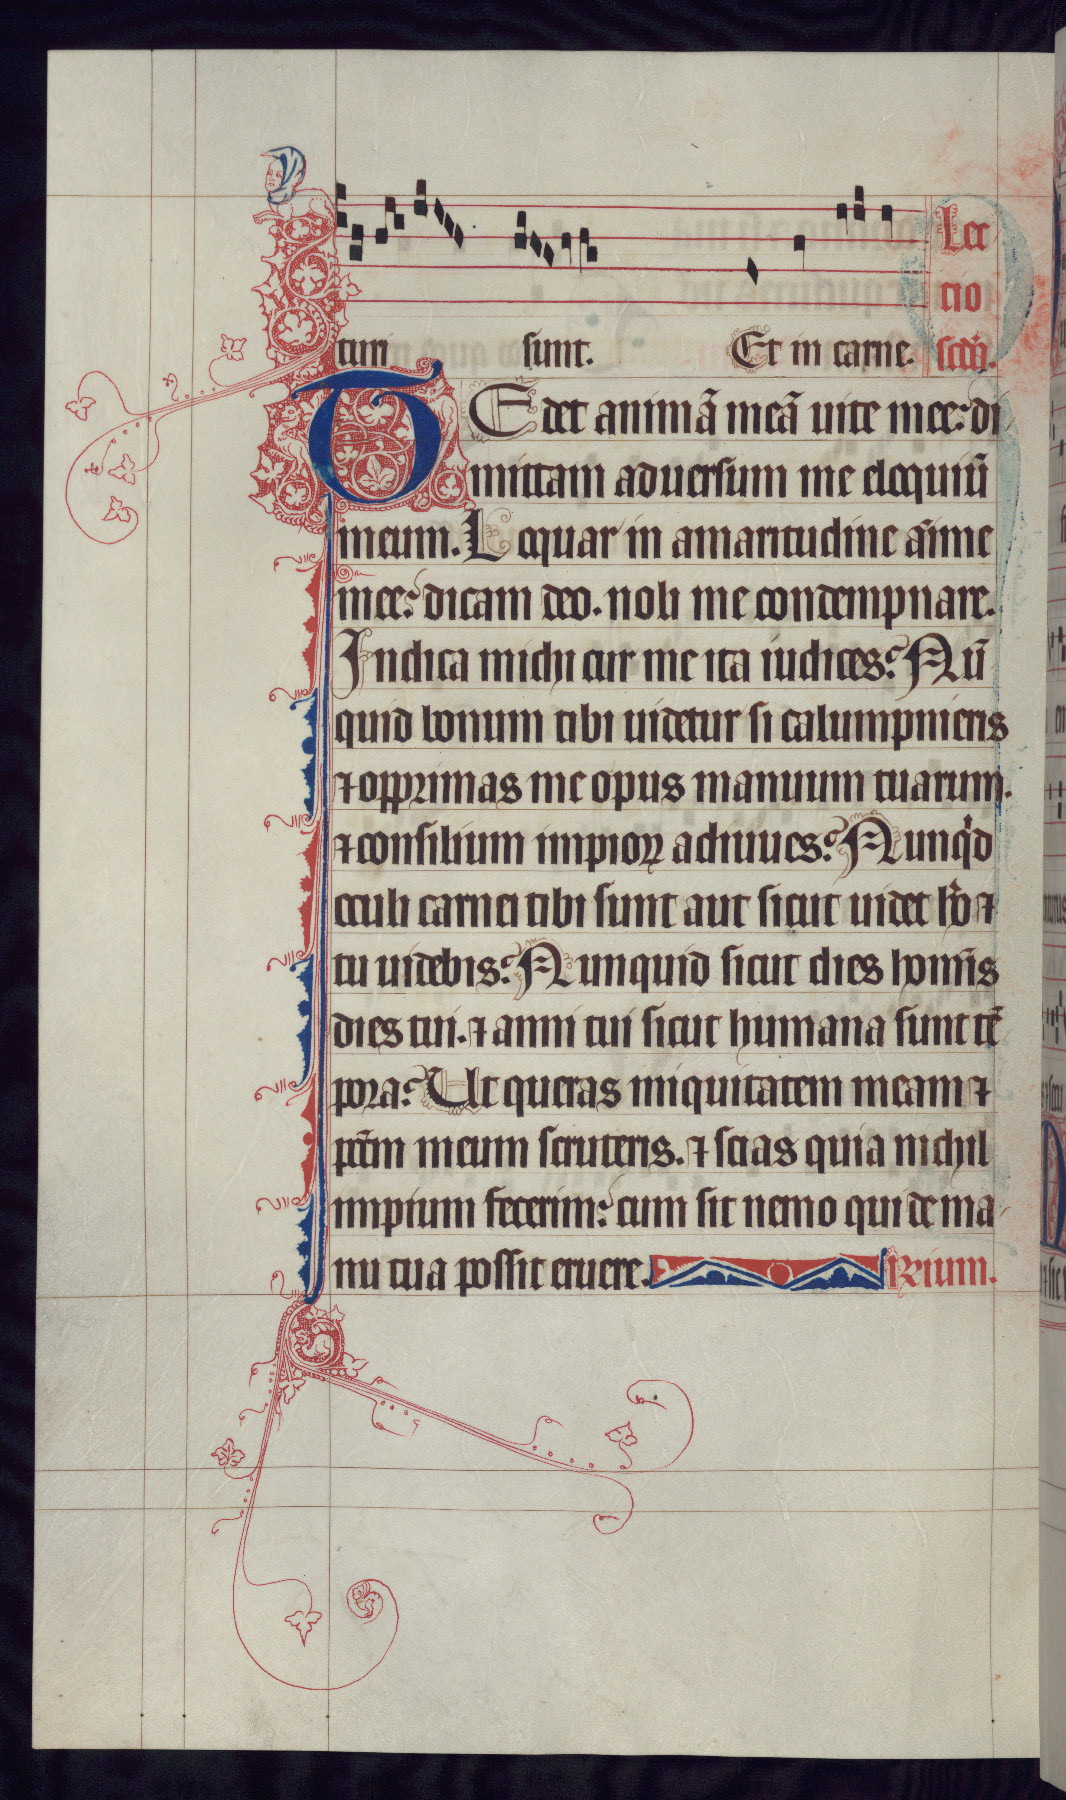 turi sunt. Et in carne. Lec
cio
scda.
TEdet animā meā uite mee: di
mittam aduersum me eloquiū
meum. Loquar in amaritudine aīme
mee: dicam deo. noli me condempnare.
Indica michi cur me ita iudices: Nū
quid bonum tibi uidetur si calumpnieris
⁊ opprimas me opus manuum tuarum.
⁊ consilium impioꝝ adiuues: Nunqͥd
oculi carnei tibi sunt aut sicut uidet hō ⁊
tu uidebis: Nunquid sicut dies homīs
dies tui. ⁊ anni tui sicut humana sunt tē
pora: Ut queras iniquitatem meam ⁊
pctm̄ meum scruteris. ⁊ scias quia nichil
impium fecerim: cum sit nemo qui de ma
nu tua possit eruere. irium.